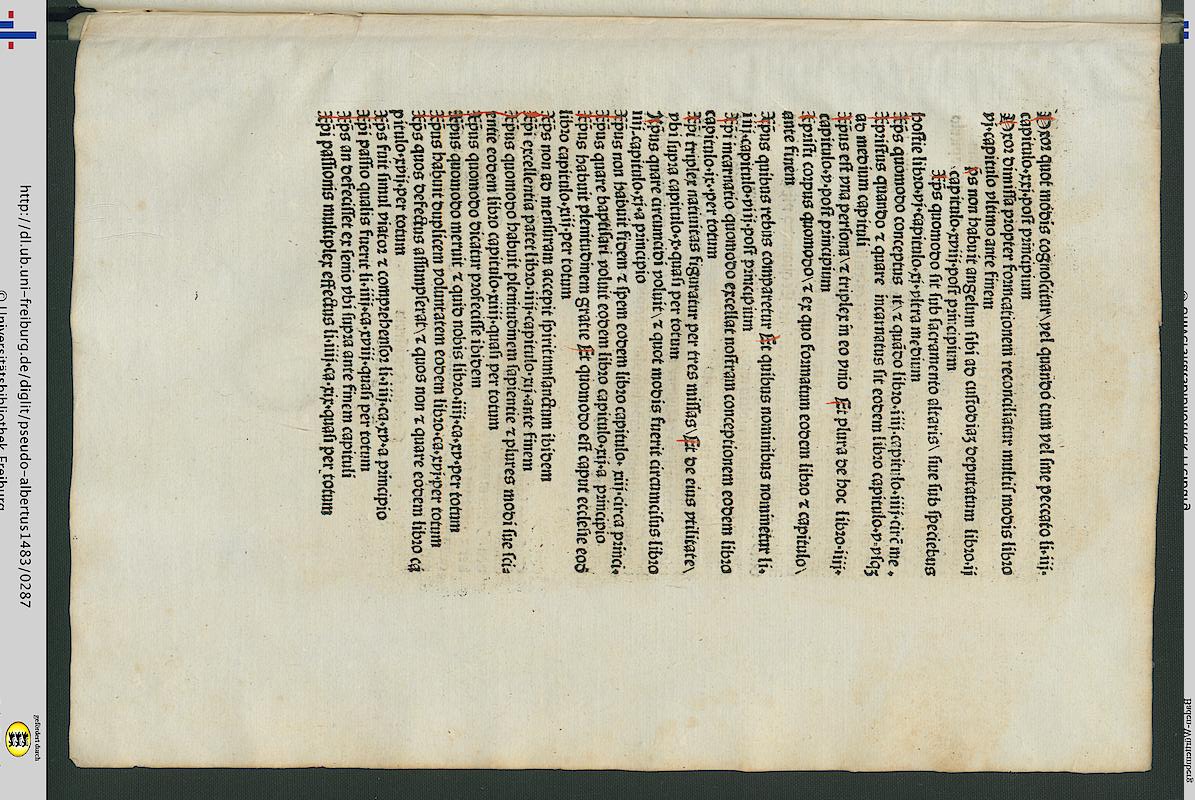 Uxor quot modis cognoscitur \ vel quando cum vel sine peccato li·iij·
capitulo·xxj·post principium
Uxor dimissa propter fornicationem reconciliatur multis modis libro
vj·capitulo vltimo ante finem
xp̄s non habuit angelum sibi ad custodiaʒ deputatum libro·ij
capitulo·xviij·post principium
Xp̄s quomodo sit sub sacramento altaris \ siue sub speciebus
hostie libro·vj·capitulo·xj·vltra medium
Xp̄s quomodo conceptus sit \ ⁊ quādo libro·iij·capitulo·iiij·circ̄ me
Xpristus quando ⁊ quare incarnatus sit eodem libro capitulo·v·vsqʒ
ad medium capituli
Xpūs est vna persona \ ⁊ triplex in eo vnio Et plura de hoc libro·iiij·
capitulo·v·post principium
Xpristi corpus quomodo \ ⁊ ex quo formatum eodem libro ⁊ capitulo \
ante finem
Xp̄us quibus rebus comparetur Et quibus nominibus nominetur li·
iij·capitulo·viij·post principium
Xp̄i incarnatio quomodo excellat nostram conceptionem eodem libro
capitulo·ix·per totum
Xp̄i triplex natiuitas figuratur per tres missas \ Et de eius vtilitate \
vbi supra capitulo·x·quasi per totum
Xp̄us quare circumcidi voluit \ ⁊ quot modis fuerit circumcisus libro
iiij·capitulo·xj·a principio
Xpus non habuit fidem ⁊ spem eodem libro capitulo· xiij·circa princi·
Xpus quare baptisari voluit eodem libro capitulo·xij·a principio
Xpus habuit plenitudinem gratie Et quomodo est caput ecclesie eod̄
libro capitulo·xiij·per totum
Xp̄s non ad mensuram accepit spiritumsanctum ibidem
Xp̄i excellentia patet libro·iiij·capitulo·xij·ante finem
Xpus quomodo habuit plenitudinem sapientie ⁊ plures modi sue sci⸗
entie eodem libro capitulo·xiiij·quasi per totum
Xp̄us quomodo dicatur profecisse ibidem
Xp̄us quomodo meruit ⁊ quid nobis libro·iiij·ca·xv·per totum
Xpus habuit duplicem voluntatem eodem libro·ca·xvj·per totum
Xp̄s quos defectus assumpserat \ ⁊ quos non ⁊ quare eodem libro ca
pitulo·xvij·per totum
Xp̄s fuit simul viator ⁊ comprehensor li·iiij·ca·xv·a principio
Xp̄i passio qualis fuerit li·iiij·ca·xviij·quasi per totum
Xp̄s an defecisset ex senio vbi supra ante finem capituli
Xp̄i passionis multiplex effectus li·iiij·ca·xix·quasi per totum
http://dl.ub.uni-freiburg.de/diglit/pseudo-albertus1483/0287
© Universitätsbibliothek Freiburg
gefördert durch